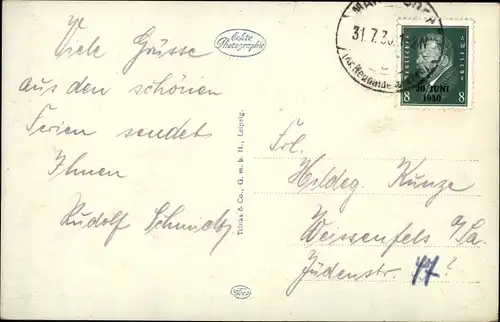 Viele Grüsse
aus den schönen
Ferien sendet
Ihnen
Rudolf
Echte
Photographie
Trinks & Co., G. m. b. H., Leipzig.
31.7.30.
8 8
30. JUNI
1930
Frl.
Hildeg. Kunze
Weissenfels a/Sa.
Judenstr. 47?